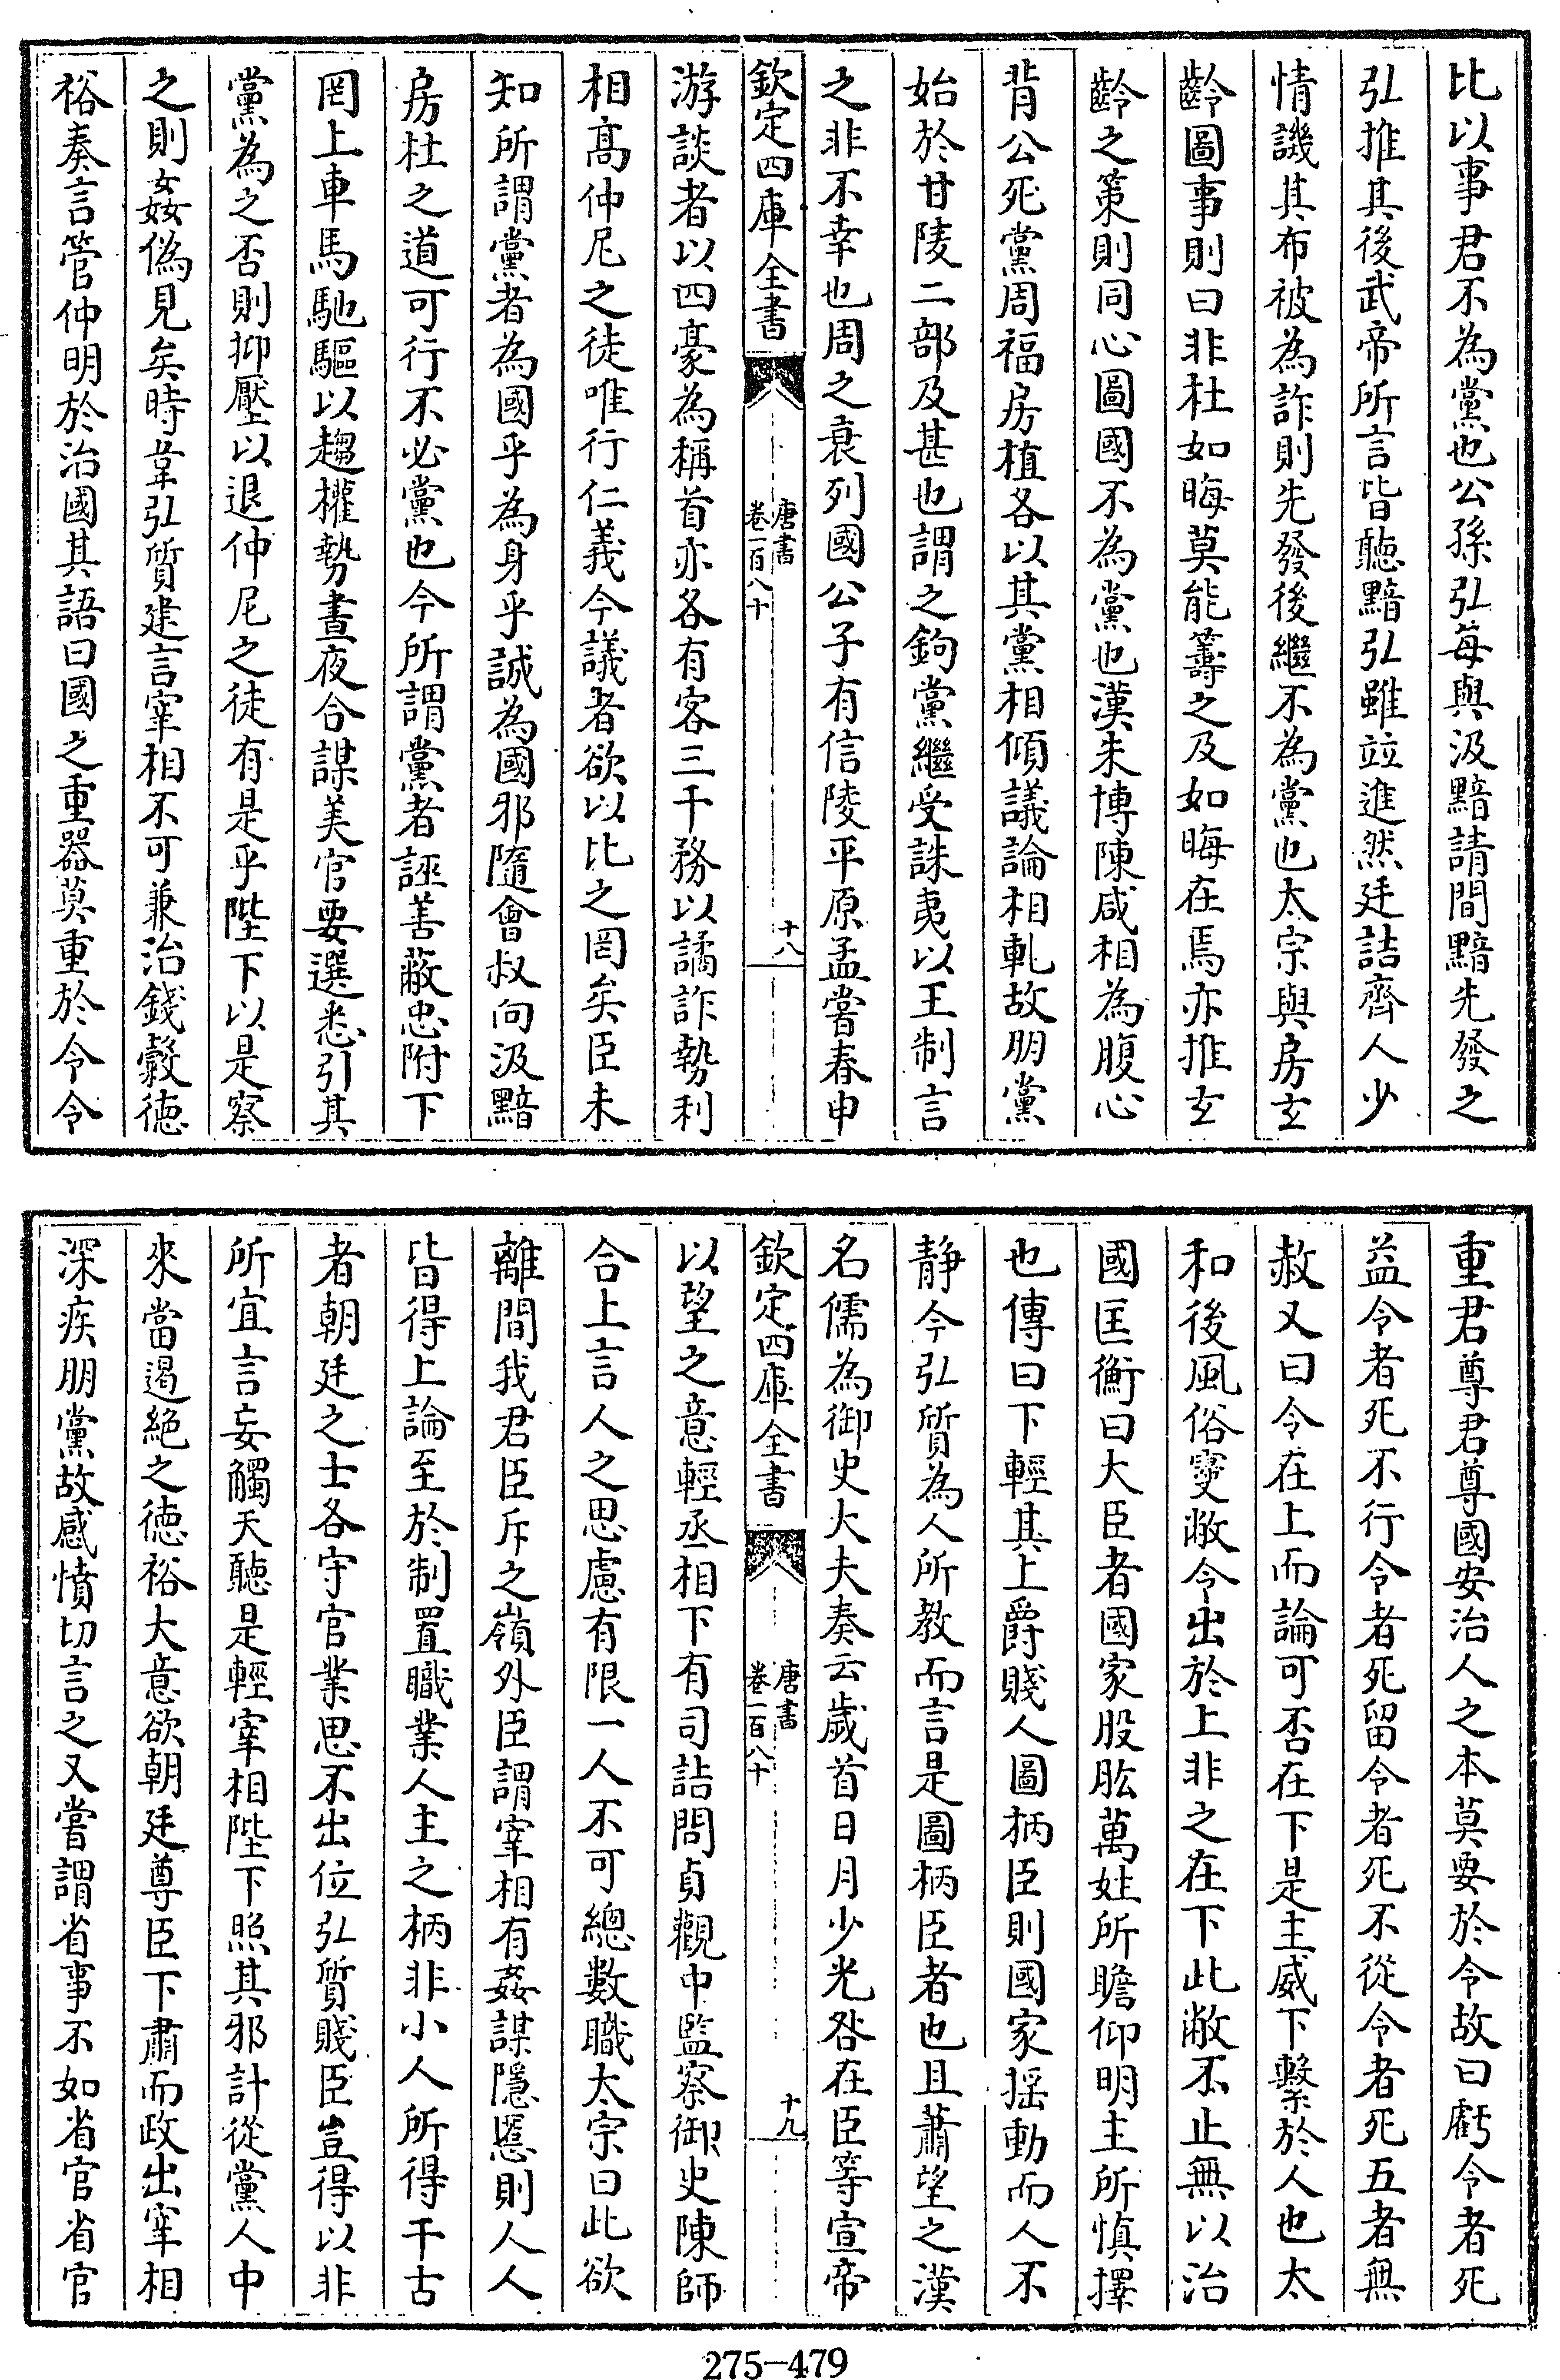 比以事君不為黨也公孫弘每與汲黯請間黯先發之
弘推其後武帝所言皆聽黯弘雖竝進然廷詰齊人少
情譏其布被為詐則先發後繼不為黨也太宗與房玄
齡圖事則曰非杜如晦莫能籌之及如晦在焉亦推玄
齡之策則同心圖國不為黨也漢朱博陳咸相為腹心
背公死黨周福房植各以其黨相傾議論相軋故朋黨
始於甘陵二部及甚也謂之鉤黨繼受誅夷以王制言
之非不幸也周之衰列國公子有信陵平原孟嘗春申
欽定四庫全書
唐書
卷一百八十
十八
游談者以四豪為稱首亦各有客三千務以譎詐勢利
相高仲尼之徒唯行仁義今議者欲以比之罔矣臣未
知所謂黨者為國乎為身乎誠為國邪隨會叔向汲黯
房杜之道可行不必黨也今所謂黨者誣善蔽忠附下
罔上車馬馳驅以趨權勢晝夜合謀美官要選悉引其
黨為之否則抑壓以退仲尼之徒有是乎陛下以是察
之則姦偽見矣時韋弘質建言宰相不可兼治錢穀德
裕奏言管仲明於治國其語曰國之重器莫重於令令
重君尊君尊國安治人之本莫要於令故曰虧令者死
益令者死不行令者死留令者死不從令者死五者無
赦又曰令在上而論可否在下是主威下繫於人也太
和後風俗寖敝令出於上非之在下此敝不止無以治
國匡衡曰大臣者國家股肱萬姓所瞻仰明主所慎擇
也傳曰下輕其上爵賤人圖柄臣則國家摇動而人不
静今弘質為人所教而言是圖柄臣者也且蕭望之漢
名儒為御史大夫奏云歲首日月少光咎在臣等宣帝
欽定四庫全書
唐書
卷一百八十
十九
以望之意輕丞相下有司詰問貞觀中監察御史陳師
合上言人之思慮有限一人不可總數職太宗曰此欲
離間我君臣斥之嶺外臣謂宰相有姦謀隱慝則人人
皆得上論至於制置職業人主之柄非小人所得干古
者朝廷之士各守官業思不出位弘質賤臣豈得以非
所宜言妄觸天聽是輕宰相陛下照其邪計從黨人中
來當遏絶之德裕大意欲朝廷尊臣下肅而政出宰相
深疾朋黨故感憤切言之又嘗謂省事不如省官省官
275-479